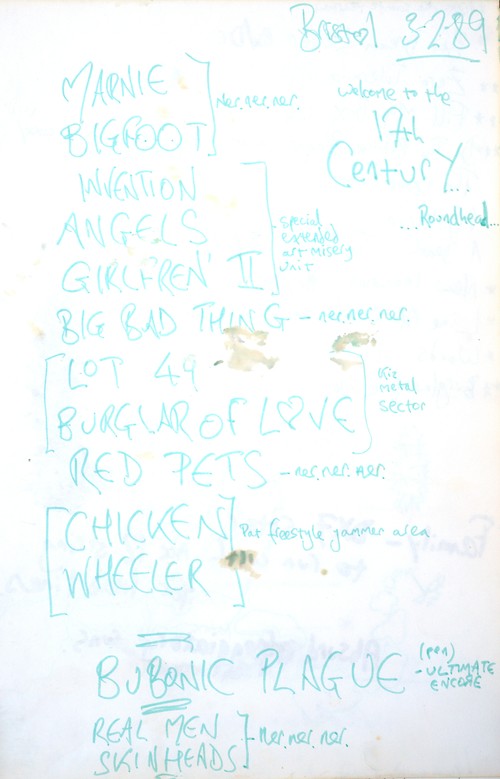 Bristol 3-2-89
MARNIE
BIGFOOT
ner.ner.ner.
welcome to the
17th
Century...
...Roundhead...
INVENTION
ANGELS
GIRLFREN' II
special
extended
art misery
unit
BIG BAD THING - ner.ner.ner.
LOT 49
BURGLAR OF LOVE
metal
sector
RED PETS - ner.ner.ner.
CHICKEN
WHEELER
Pat freestyle jammer area
BUBONIC PLAGUE
(pen)
- ULTIMATE
ENCORE
REAL MEN
SKINHEADS
- ner.ner.ner.